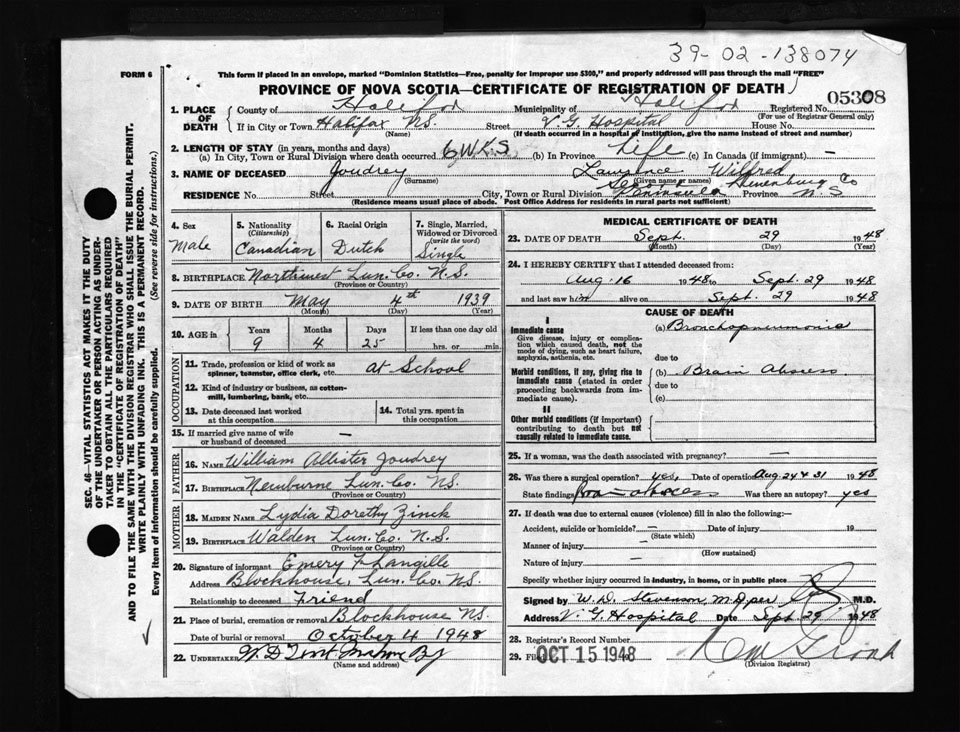 39-02-138074
FORM 6
This form if placed in an envelope, marked "Dominion Statistics—Free, penalty for improper use $300," and properly addressed will pass through the mail "FREE"
PROVINCE OF NOVA SCOTIA—CERTIFICATE OF REGISTRATION OF DEATH
05308
1. PLACE OF DEATH
County of Halifax Municipality of Halifax Registered No.
(For use of Registrar General only)
If in City or Town Halifax N.S. Street V. G. Hospital House No.
(Name) (If death occurred in a hospital of institution, give the name instead of street and number)
2. LENGTH OF STAY (in years, months and days)
(a) In City, Town or Rural Division where death occurred 6 WKS. (b) In Province Life (c) In Canada (if immigrant) —
3. NAME OF DECEASED Joudrey Lawrence Wilfred
(Surname) (Given name or names)
Lunenburg Co
RESIDENCE No. Street City, Town or Rural Division Province N.S.
(Residence means usual place of abode. Post Office Address for residents in rural parts not sufficient)
4. Sex
Male
5. Nationality
(Citizenship)
Canadian
6. Racial Origin
Dutch
7. Single, Married, Widowed or Divorced
(write the word)
Single
8. BIRTHPLACE Northwest Lun. Co. N.S.
(Province or Country)
9. DATE OF BIRTH May 4th 1939
(Month) (Day) (Year)
10. AGE in
Years Months Days If less than one day old
9 4 25 hrs. or min.
OCCUPATION
11. Trade, profession or kind of work as
spinner, teamster, office clerk, etc. at School
12. Kind of industry or business, as cotton-
mill, lumbering, bank, etc.
13. Date deceased last worked
at this occupation
14. Total yrs. spent in
this occupation
15. If married give name of wife
or husband of deceased —
FATHER
16. NAME William Allister Joudrey
17. BIRTHPLACE Newburne Lun. Co. N.S.
(Province or Country)
MOTHER
18. MAIDEN NAME Lydia Dorethy Zinck
19. BIRTHPLACE Walden Lun. Co. N.S.
(Province or Country)
20. Signature of informant Emery F Langille
Address Blockhouse, Lun. Co. N.S.
Relationship to deceased Friend
21. Place of burial, cremation or removal Blockhouse N.S.
Date of burial or removal October 4 1948
22. UNDERTAKER Mahone
(Name and address)
MEDICAL CERTIFICATE OF DEATH
23. DATE OF DEATH Sept. 29 1948
(Month) (Day) (Year)
24. I HEREBY CERTIFY that I attended deceased from:
Aug. 16 1948 to Sept. 29 1948
and last saw him alive on Sept. 29 1948
CAUSE OF DEATH
I
Immediate cause
Give disease, injury or complica-
tion which caused death, not the
mode of dying, such as heart failure,
asphyxia, asthenia, etc.
(a) Bronchopneumonia
due to
Morbid conditions, if any, giving rise to
immediate cause (stated in order
proceeding backwards from im-
mediate cause).
(b) Brain Abscess
due to
(c)
II
Other morbid conditions (if important)
contributing to death but not
causally related to immediate cause.
25. If a woman, was the death associated with pregnancy? —
26. Was there a surgical operation? yes, Date of operation Aug 24 & 31 1948
State findings Brain abscess Was there an autopsy? yes
27. If death was due to external causes (violence) fill in also the following:—
Accident, suicide or homicide? — Date of injury 19
(State which)
Manner of injury —
(How sustained)
Nature of injury —
Specify whether injury occurred in industry, in home, or in public place
Signed by W. D. Stevenson, M.D. per M.D.
Address V. G. Hospital Date Sept. 29 1948
28. Registrar's Record Number
29. OCT 15 1948
(Division Registrar)
SEC. 46—VITAL STATISTICS ACT MAKES IT THE DUTY
OF THE UNDERTAKER OR PERSON ACTING AS UNDER-
TAKER TO OBTAIN ALL THE PARTICULARS REQUIRED
IN THE "CERTIFICATE OF REGISTRATION OF DEATH"
AND TO FILE THE SAME WITH THE DIVISION REGISTRAR WHO SHALL ISSUE THE BURIAL PERMIT.
WRITE PLAINLY WITH UNFADING INK. THIS IS A PERMANENT RECORD.
Every item of information should be carefully supplied. (See reverse side for instructions.)